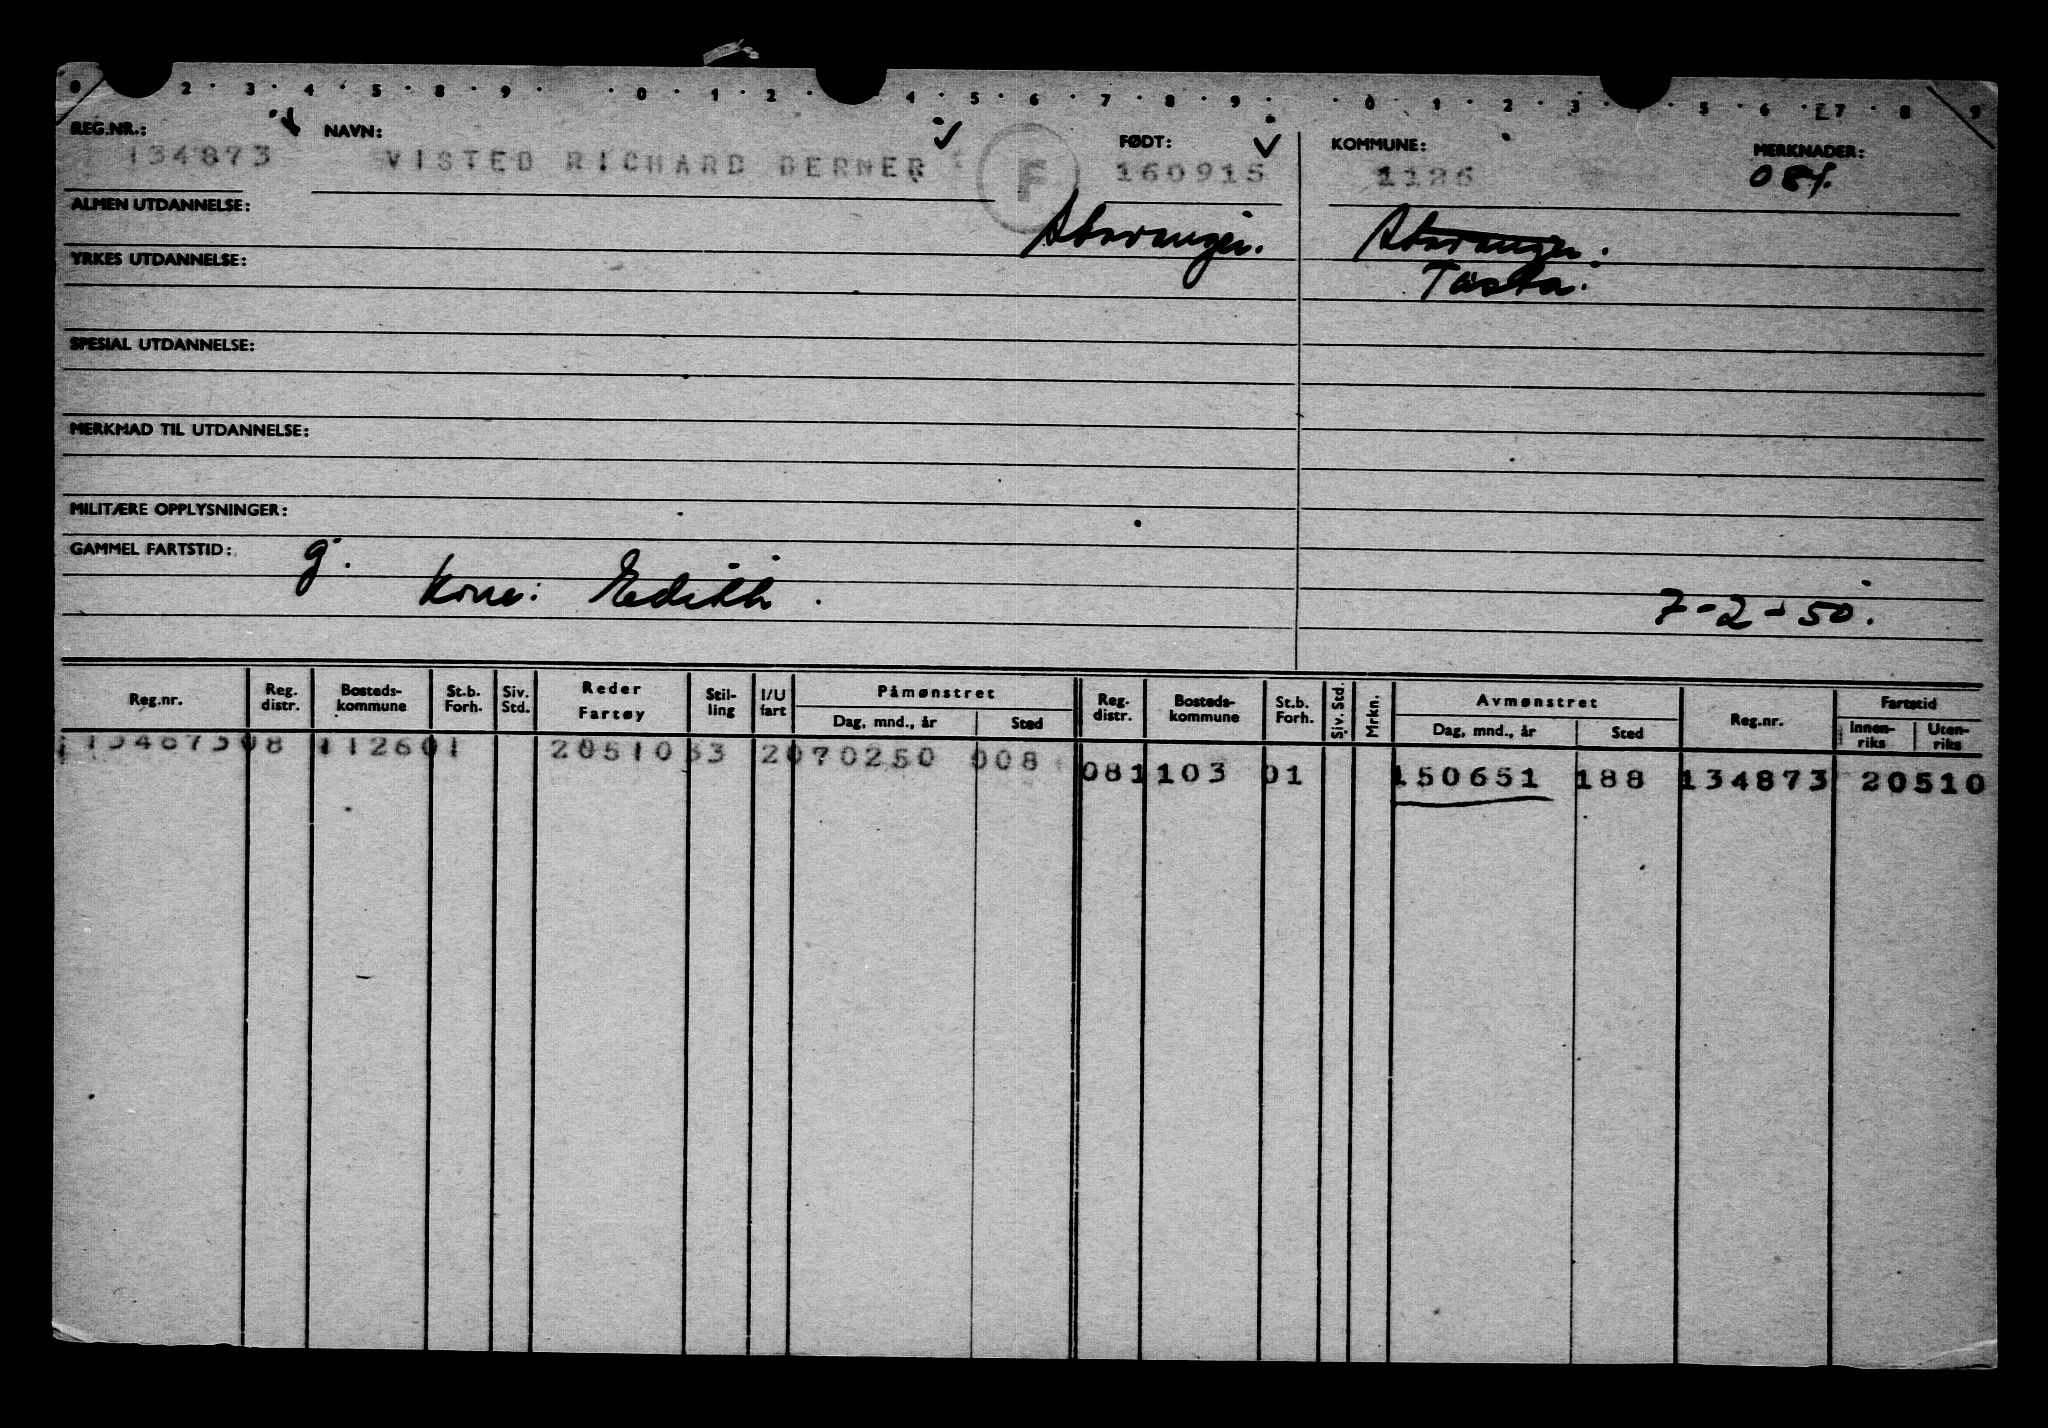 0 2 · 3 · 4 · 5 · 8 · 9 · · 0 · 1 · 2 · 4 · 5 · 6 · 7 · 8 · 9 · · 0 · 1 · 2 · 3 · 5 · 6 · 7 · 8 · 9
REG.NR.: NAVN: FØDT: KOMMUNE: MERKNADER:
134873 VISTED RICHARD BERNER F 160915 1126 081.
ALMEN UTDANNELSE: Stavanger. Stavanger.
YRKES UTDANNELSE: Tasta.
SPESIAL UTDANNELSE:
MERKMAD TIL UTDANNELSE:
MILITÆRE OPPLYSNINGER:
GAMMEL FARTSTID: g.
Kone: Edith. 7-2-50.
Reg.nr. Reg. distr. Bosteds-kommune St.b. Forh. Siv. Std. Reder Fartøy Stil-ling I/U fart Påmønstret Dag, mnd., år Sted Reg. distr. Bosteds-kommune St.b. Forh. Siv. Std. Mrkn. Avmønstret Dag, mnd., år Sted Reg.nr. Fartstid Innen-riks Uten-riks
134873 08 1126 01 20510 53 2 070250 008
081 103 01 150651 188 134873 20510